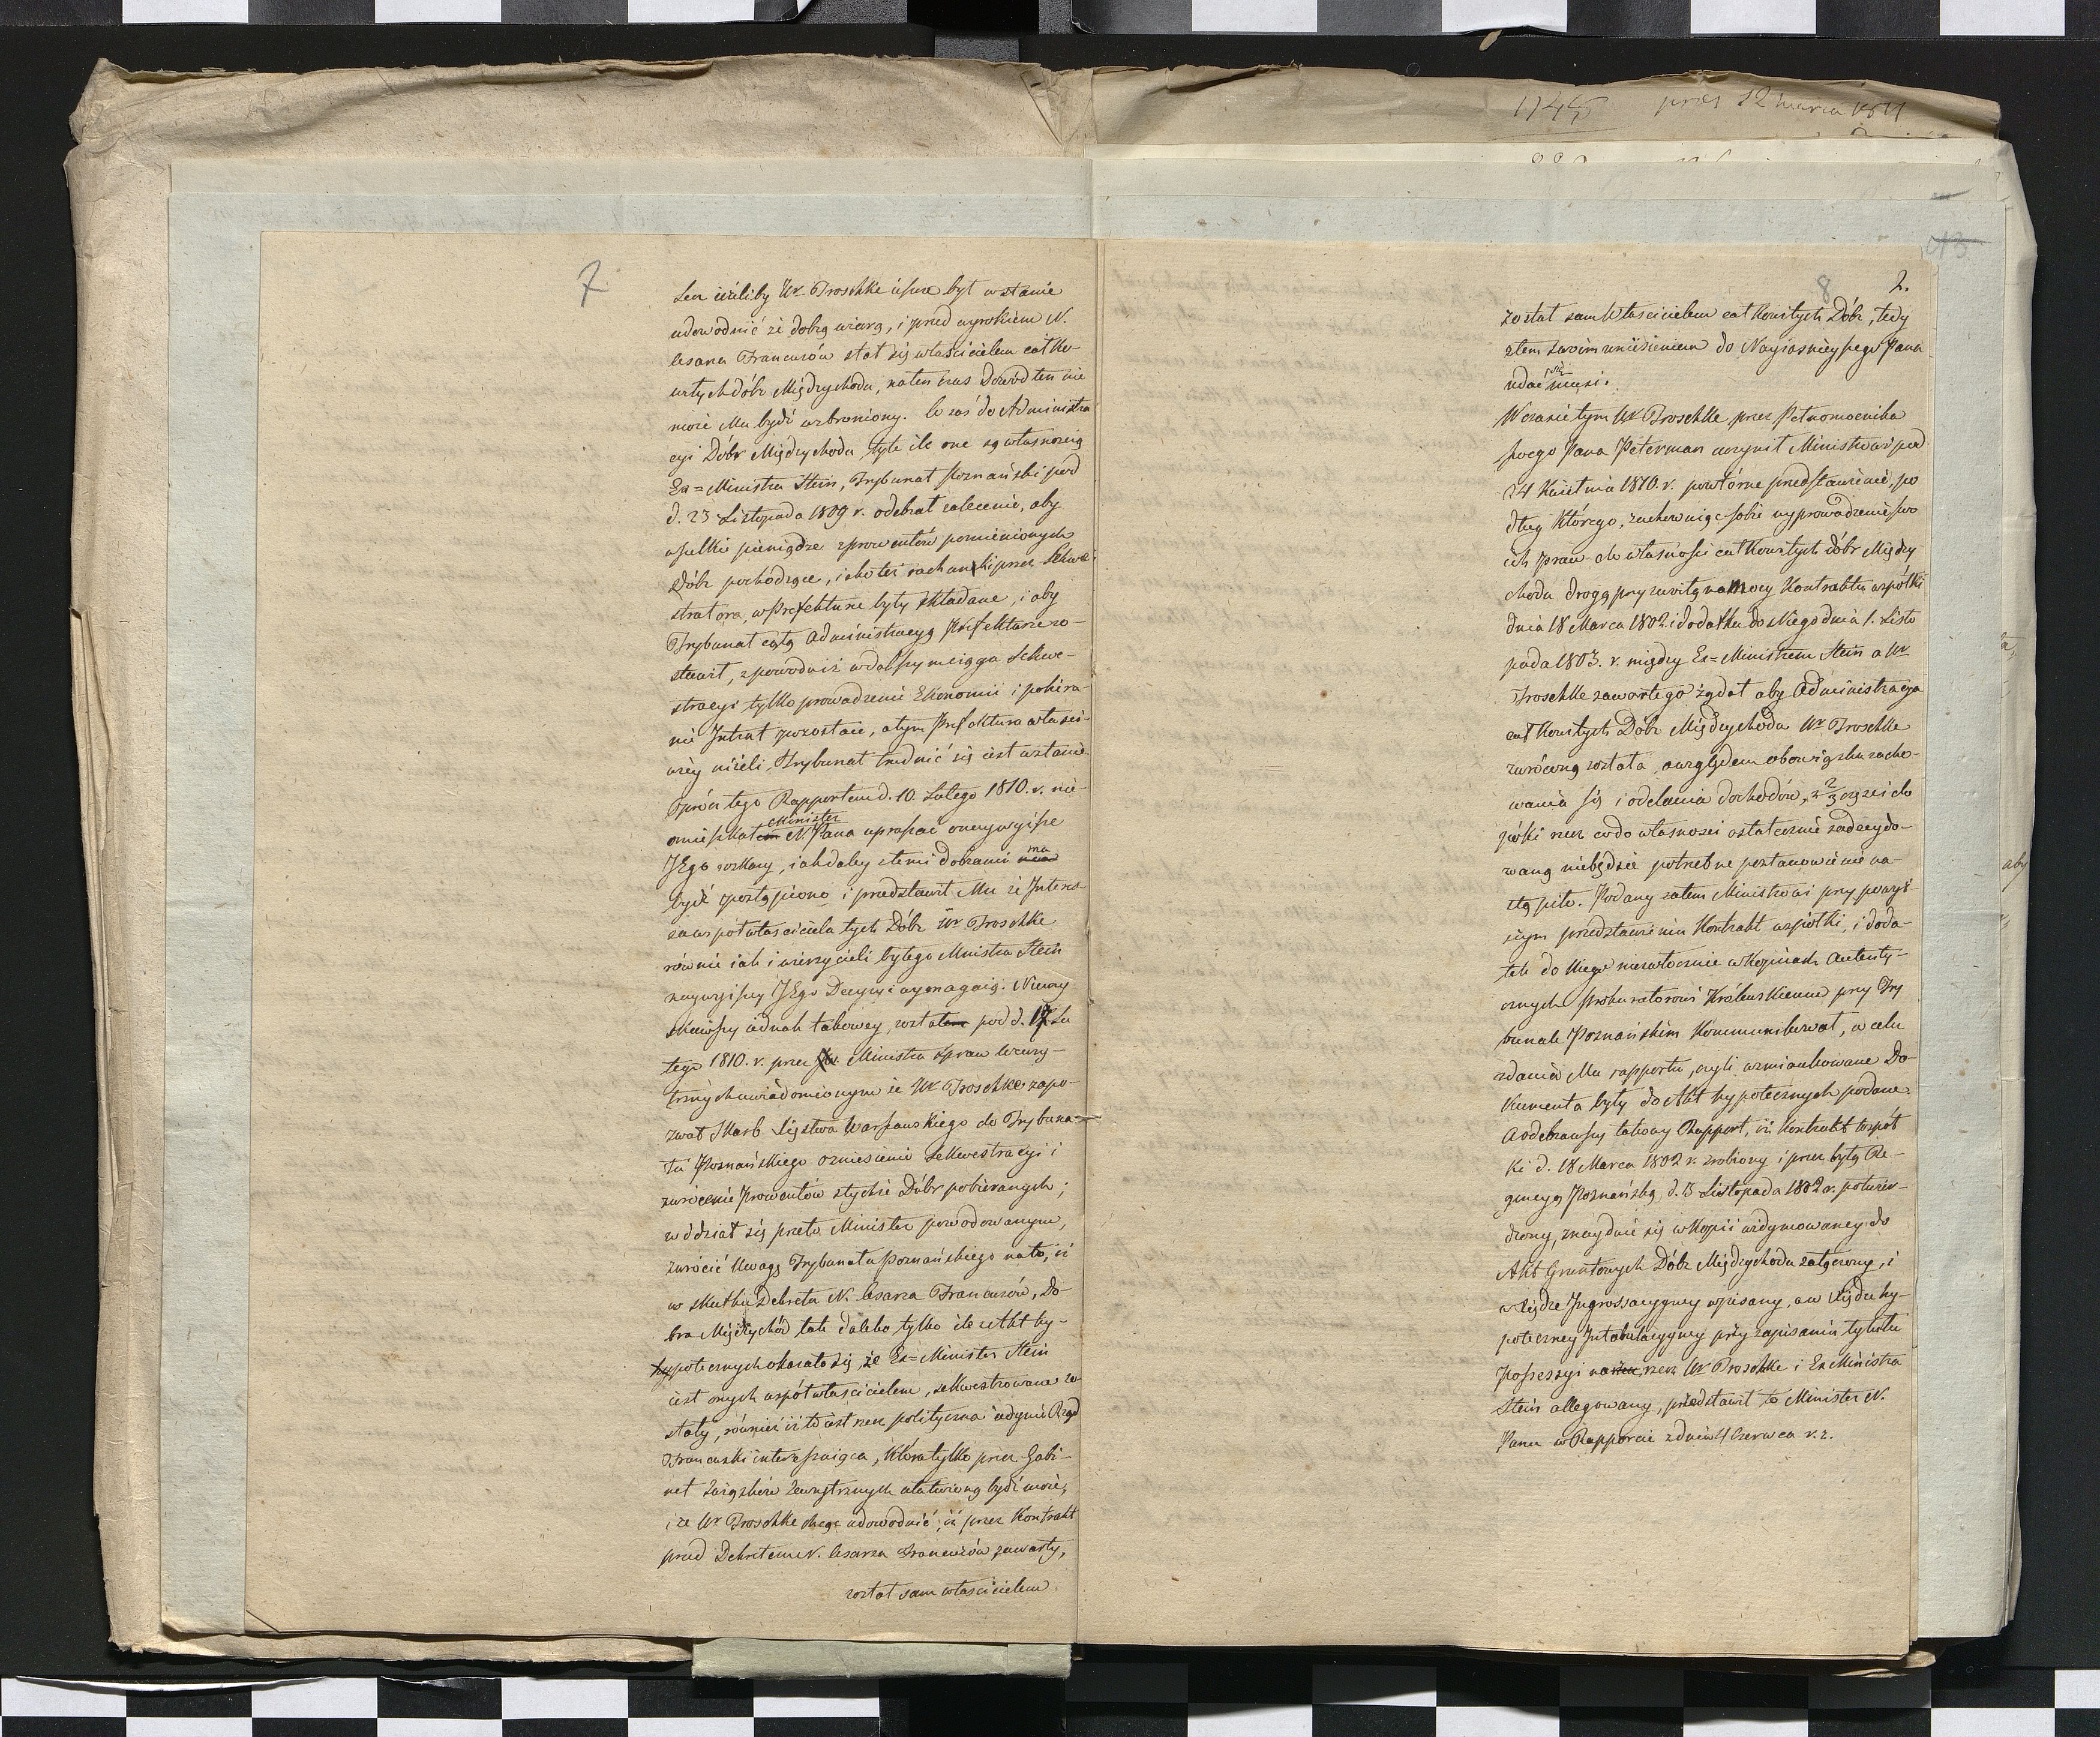 1745 prez 12 marca 1811
7
Lecz ieżeliby Ur Troschke ieszcze był w stanie
udowodnić że dobrą wiarą, i przed wyrokiem N.
Cesarza Francuzów stał się właścicielem całko-
witych dóbr Międzychodu, na ten czas dowód ten nie
może Mu bydź wzbroniony. Co zaś do Administra
cyi Dóbr Międzychodu, tyle ile one są własnością
Ex=Ministra Stein, Trybunał Poznański pod
d. 23 Listopada 1809 r. odebrał zalecenie, aby
wszelkie pieniądze z prowentów pomienionych
Dóbr pochodzące, iako też rachunki przez Sekwe-
stratora, w Prefekturze były składane, i aby
Trybunał całą Administracyą Prefekturze zo-
stawił, z powodu iż w dalszym ciągu Sekwe-
stracyi tylko prowadzenie Ekonomii i pobiera-
nie Intrat pozostaie, a tym Prefektura właści-
wiéy niżeli Trybunał trudnić się iest w stanie
Oprócz tego Rapportem d. 10. Lutego 1810. r. nie-
omieszkał Minister N. Pana upraszać o naywyższe
JEgo rozkazy, iak daley z temi dobrami ma
bydź postąpiono i przedstawił Mu że Interes
za współwłaściciela tych Dóbr Ur Troschke
równie iak i wierzycieli byłego Ministra Stein
naywyższey JEgo Decyzyi wymagaią. Nieotrzy
mawszy iednak takowey, został pod d. 17 Lu
tego 1810. r. przez Ministra Spraw Wewnę-
trznych uwiadomionym że Ur Troschke zapo-
zwał Skarb Xięstwa Warszawskiego do Trybuna-
łu Poznańskiego o zniesienie Sekwestracyi i
zwrócenie Prowentów z tychże Dóbr pobieranych;
widział się przeto Minister powodowanym,
zwrócić uwagę Trybunału Poznańskiego na to, iż
w skutku Dekretu N. Cesarza Francuzów, Do-
bra Międzychód tak daleko tylko ile z Akt hy-
potecznych okazało się, że Ex=Minister Stein
iest onych współwłaścicielem, sekwestrowane zo
stały, również iż to iest rzecz polityczna iedynie Rząd
Francuski interessuiąca, która tylko przez Gabi-
net Związków Zewnętrznych ułatwioną bydź może,
i że Ur Troschke chcąc udowodnić, iż przez Kontrakt
przed Dekretem N. Cesarza Francuzów zawarty,
został sam właścicielem
8 2.
został sam Właścicielem całkowitych Dóbr, tedy
z tem swoim uniesieniem do Nayiaśnieyszego Pana
udać się musi.
W czasie tym Ur Troschke przez Pełnomocnika
swego Pana Peterman uczynił Ministrowi pod
24 Kwietnia 1810. r. powtórne przedstawienie, po
dług którego, zachowuiąc sobie wyprowadzenie swo
ich praw do własności całkowitych dóbr Między
chodu drogą przyzwoitą na mocy Kontraktu wspólki
dnia 18 Marca 1802. i dodatku do Niego dnia 1. Listo
pada 1803. r. między Ex=Ministrem Stein a Ur
Troschke zawartego żądał aby Administracya
całkowitych Dóbr Międzychodu Ur Troschke
zwróconą została, a względem obowiązku zacho-
wania się i oddania dochodów, z 2/3 części do
póki rzecz co do własności ostatecznie zadecydo-
waną niebędzie potrzebne postanowienie na-
stąpiło. Podany zatem Ministrowi przy powyż-
szym przedstawieniu Kontrakt wspólki, i doda-
tek do Niego niezwłocznie w Kopiiach autenty-
cznych Prokuratorowi Królewskiemu przy Try
bunale Poznańskim Kommunikował, w celu
zdania Mu rapportu, czyli wzmiankowane Do-
kumenta były do Akt hypotecznych podane.
A odebrawszy takowy Rapport, iż Kontrakt wspól
ki d. 18 Marca 1802 r. zrobiony i przez byłą Re-
gencyą Poznańską d. 13 Listopada 1802 r. potwier-
dzony, znayduie się w Kopii widymowaney do
Akt Gruntowych Dóbr Międzychodu załączony, i
w Xiędze Ingrossacyyney wpisany, a w Xiędze hy-
poteczney Intabulacyyney przy zapisaniu tytułu
Possessyi na rzecz Ur Troschke i Ex Ministra
Stein allegowany, przedstawił to Minister N.
Panu w Rapporcie z dnia 4 Czerwca r. z.
aby